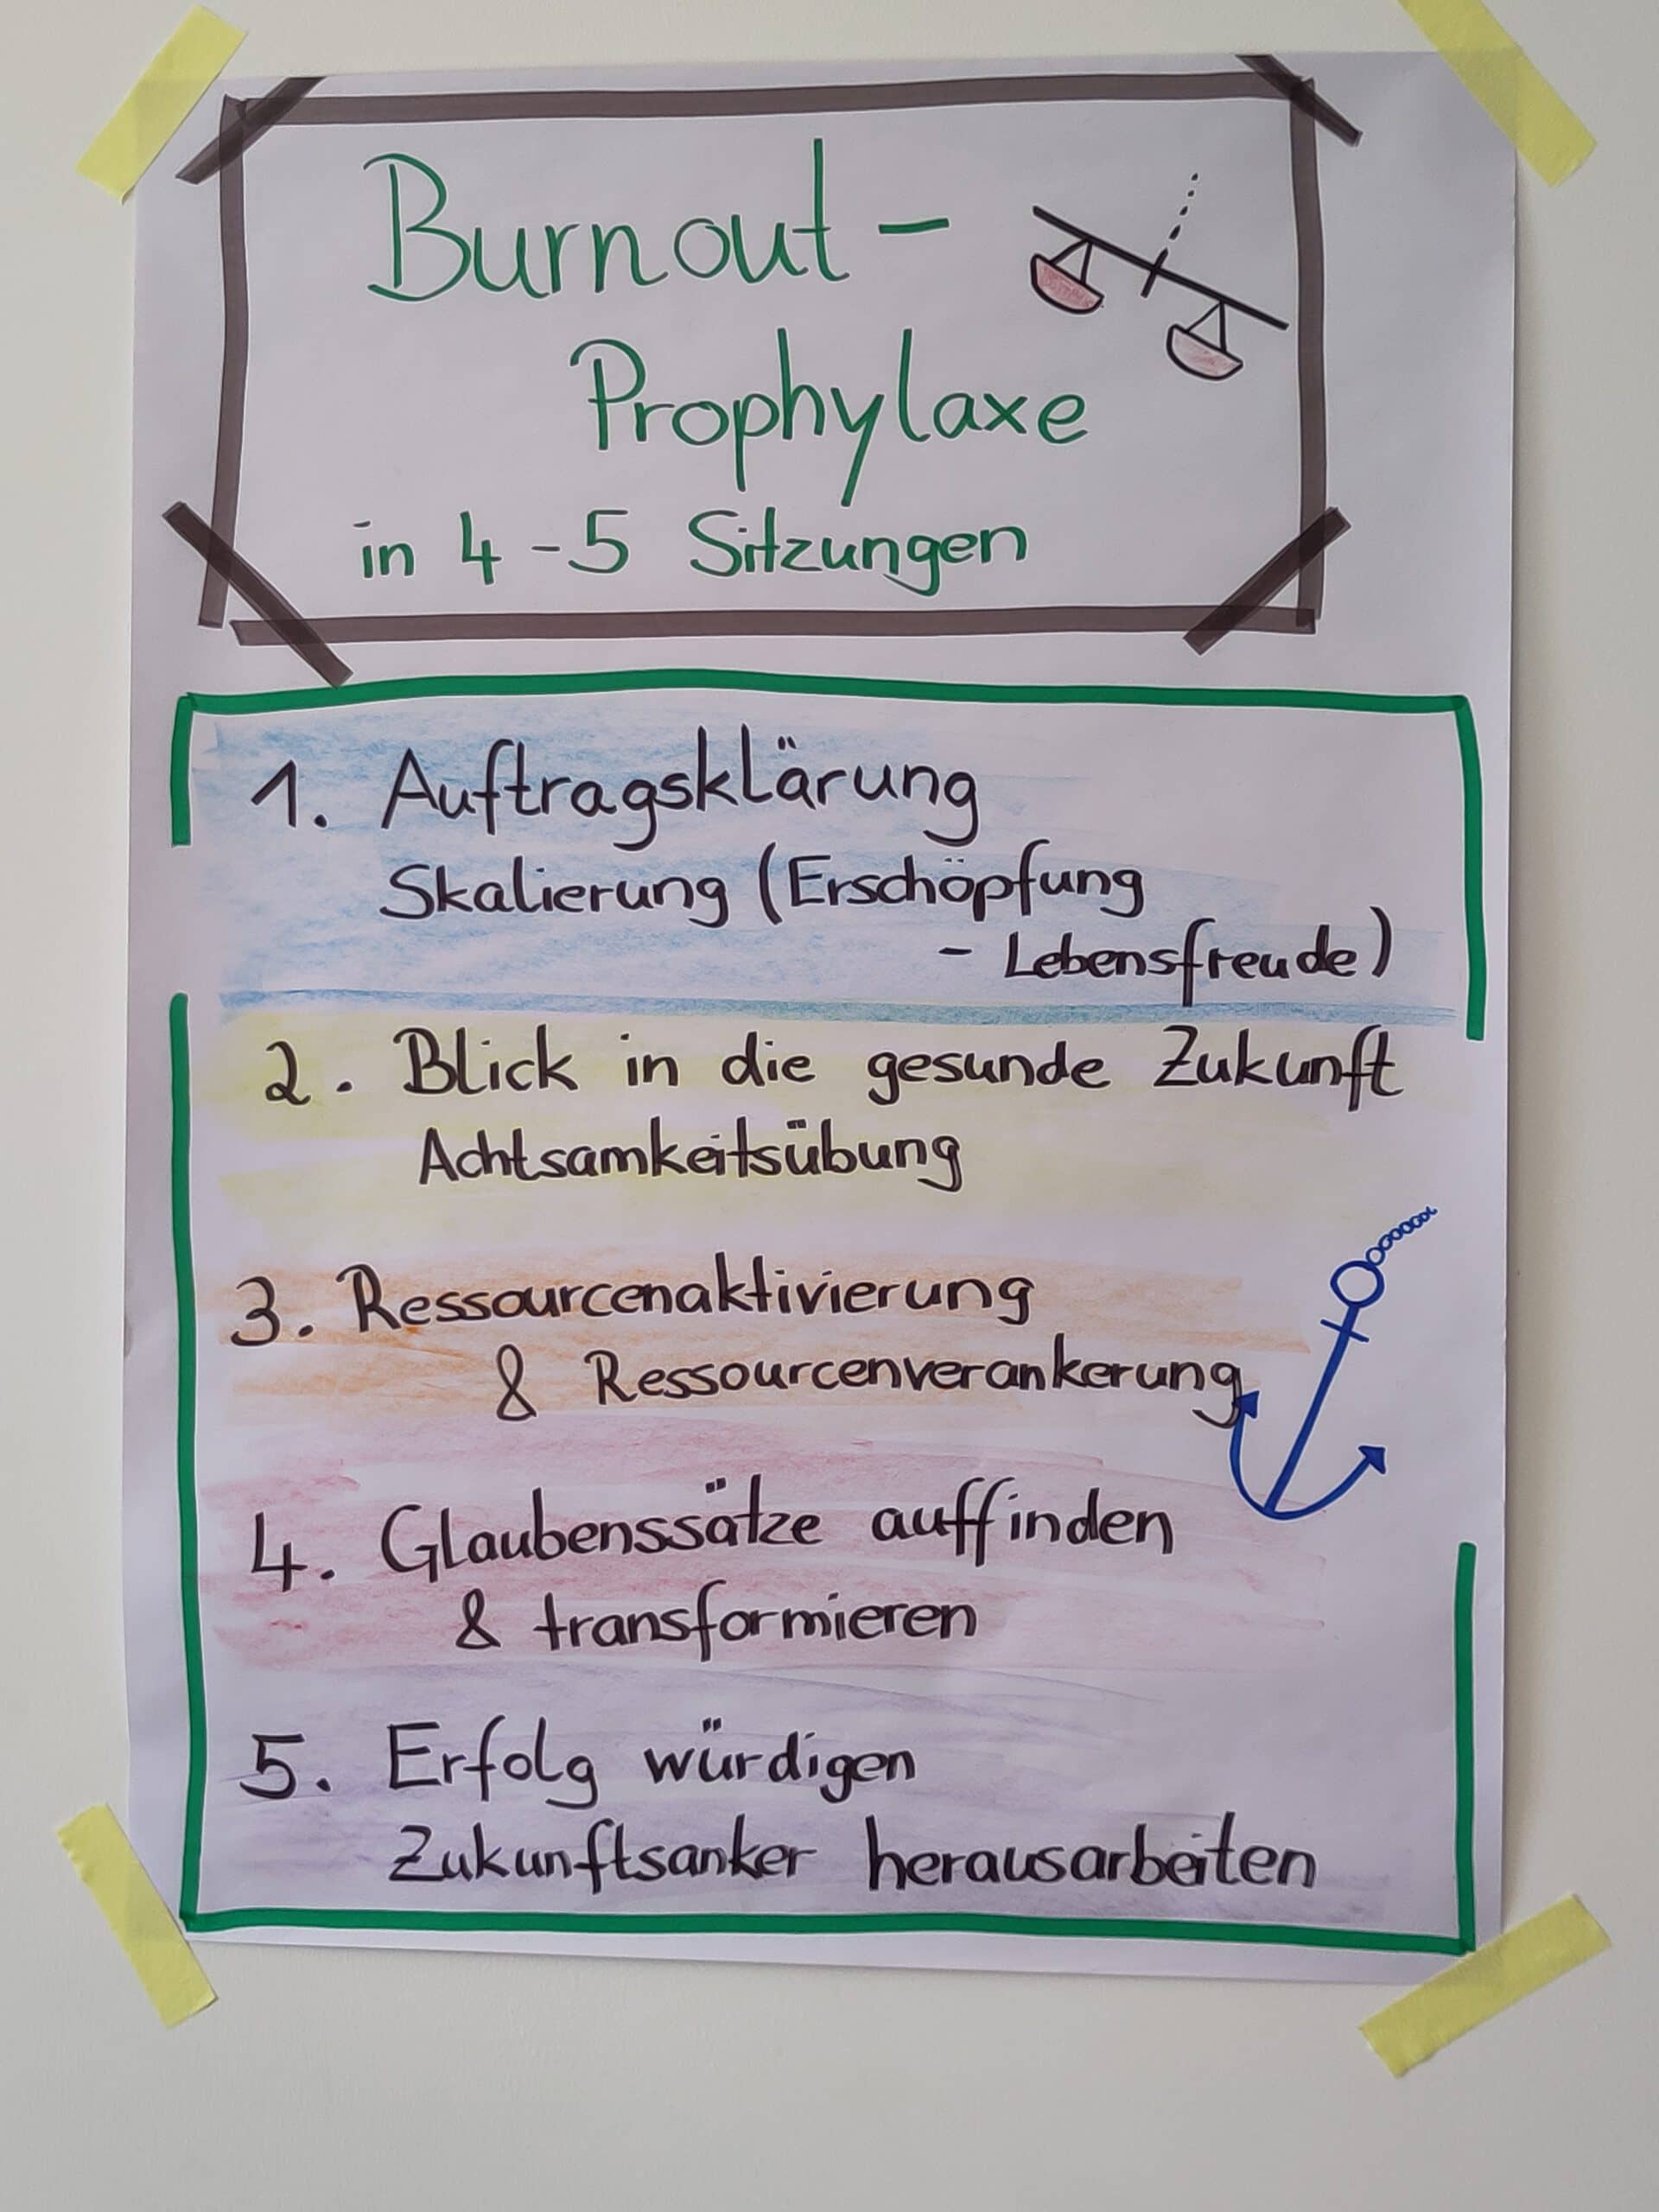 Burnout-
Prophylaxe
in 4-5 Sitzungen
1. Auftragsklärung
Skalierung (Erschöpfung
- Lebensfreude)
2. Blick in die gesunde Zukunft
Achtsamkeitsübung
3. Ressourcenaktivierung
& Ressourcenverankerung
4. Glaubenssätze auffinden
& transformieren
5. Erfolg würdigen
Zukunftsanker herausarbeiten